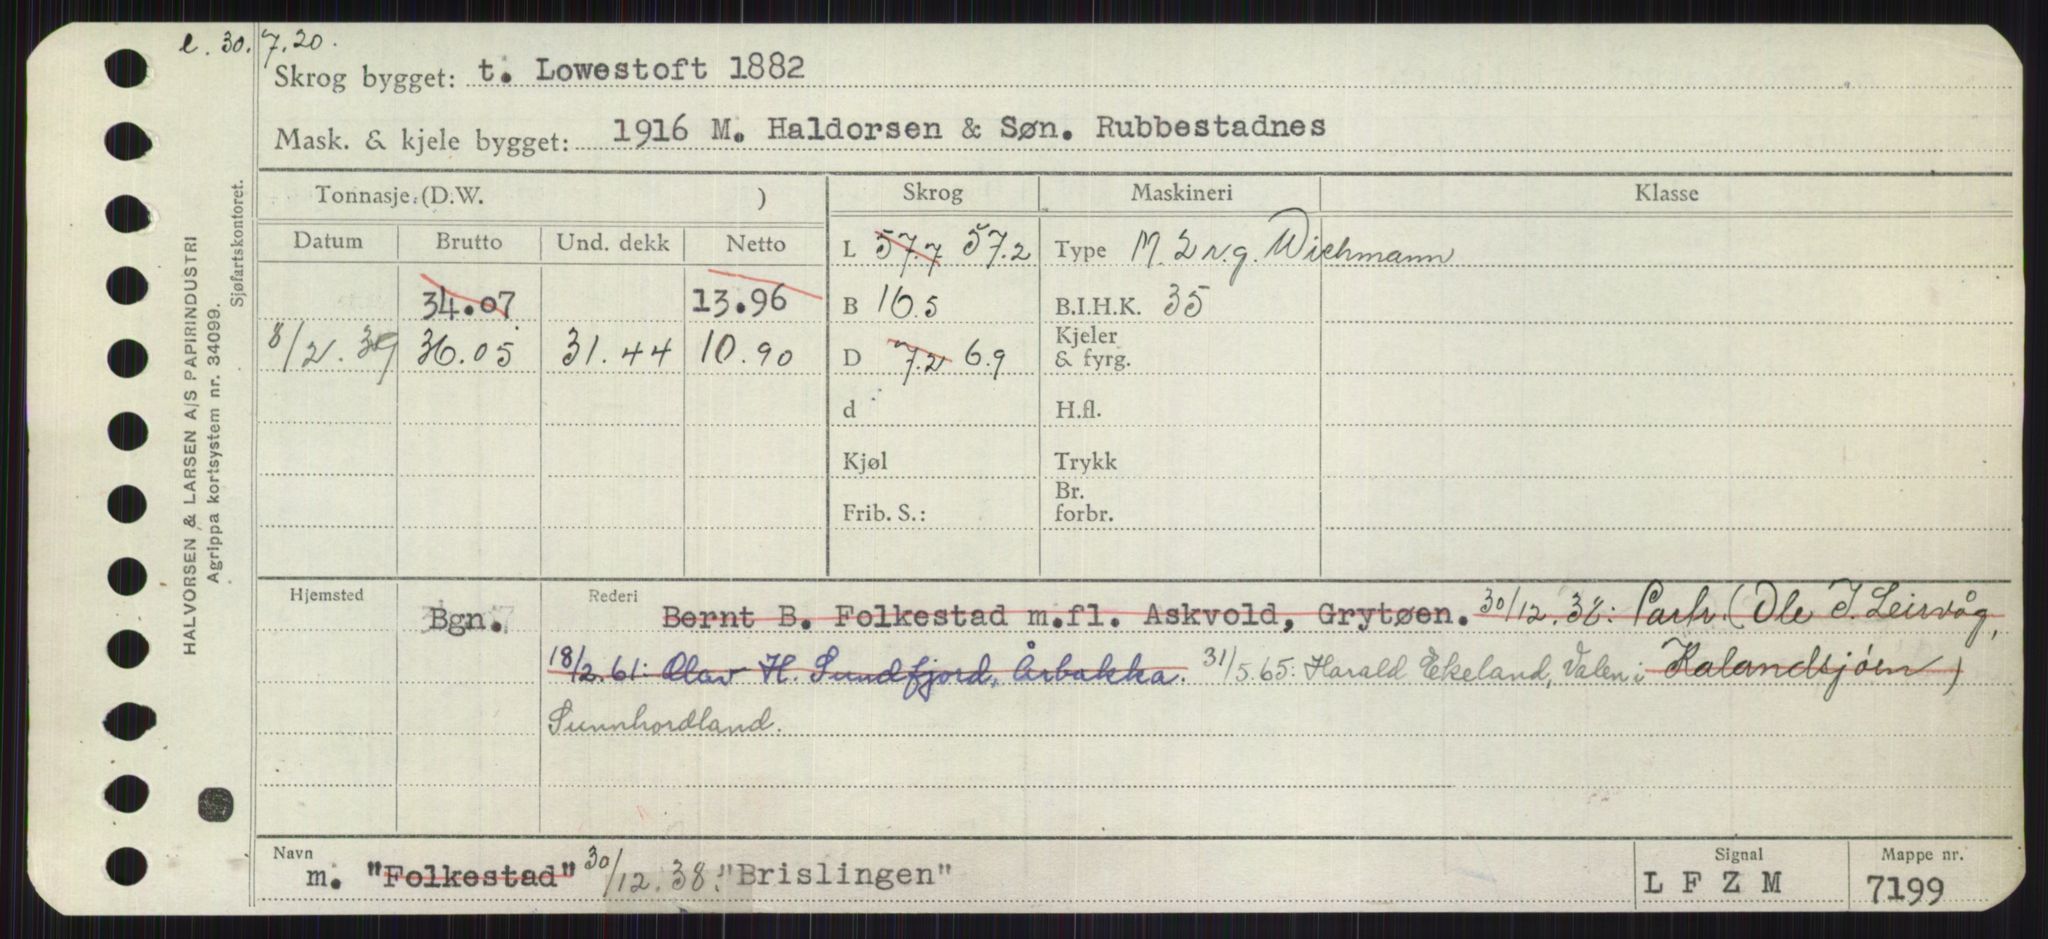 e. 30.7.20.
Skrog bygget: t. Lowestoft 1882
Mask. & kjele bygget: 1916 M. Haldorsen & Søn. Rubbestadnes
Tonnasje (D.W. ) Skrog Maskineri Klasse
Datum Brutto Und. dekk Netto L 57.7 57.2 Type M. 2 v.g. Wichmann
34.07 13.96 B 16.5 B.I.H.K. 35
8/2.39 36.05 31.44 10.90 D 7.2 6.9 Kjeler & fyrg.
d H.fl.
Kjøl Trykk
Frib. S.: Br. forbr.
Hjemsted Rederi
Bgn. Bernt B. Folkestad m.fl. Askvold, Grytøen. 30/12.38: Partr. (Ole J. Leirvåg,
Kalandsjøen)
18/2.61: Olav H. Sundfjord, Årbakka. 31/5.65: Harald Ekeland, Valen i
Sunnhordland.
Navn Signal Mappe nr.
m. "Folkestad" 30/12.38: "Brislingen" L F Z M 7199
HALVORSEN & LARSEN A/S PAPIRINDUSTRI
Agrippa kortsystem nr. 34099.
Sjøfartskontoret.